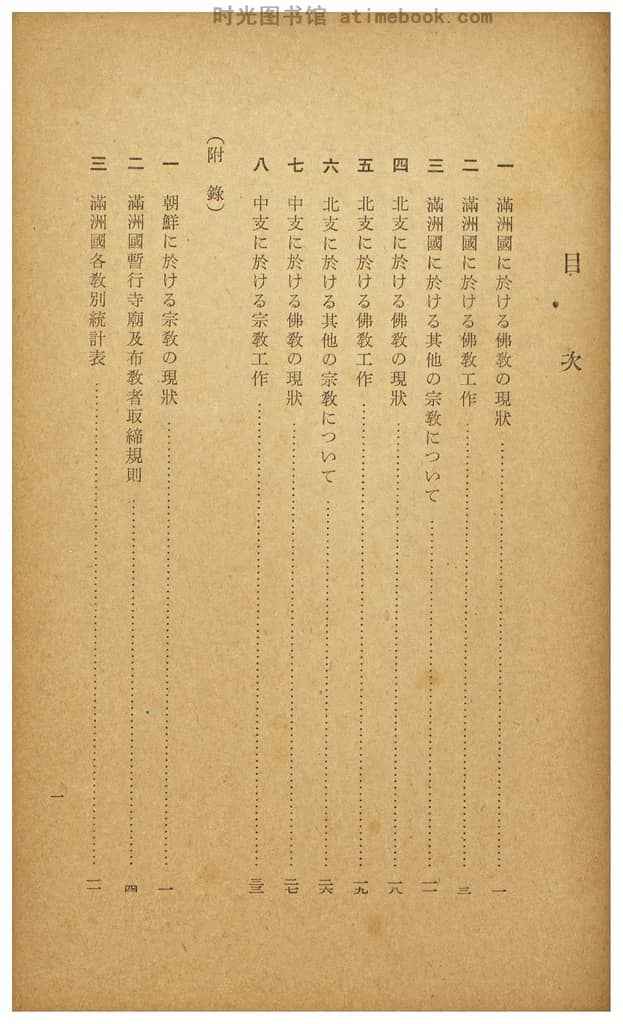 时光图书馆 atimebook.com
目次
一 滿洲國に於ける佛敎の現狀……一
二 滿洲國に於ける佛敎工作……三
三 滿洲國に於ける其他の宗敎について……一一
四 北支に於ける佛敎の現狀……一八
五 北支に於ける佛敎工作……一九
六 北支に於ける其他の宗敎について……二六
七 中支に於ける佛敎の現狀……二七
八 中支に於ける宗敎工作……三三
(附錄)
一 朝鮮に於ける宗敎の現狀……一
二 滿洲國暫行寺廟及布敎者取締規則……四
三 滿洲國各敎別統計表……一一
一